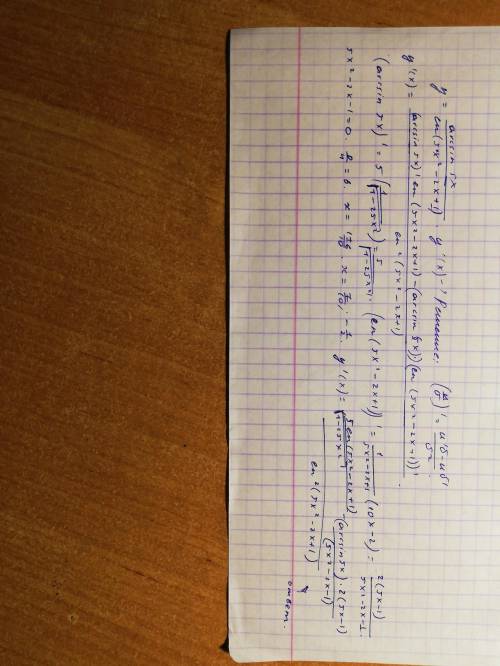 y = arcsin 5x / ln(5x²-2x+1). y'(x)-? Решение: (u/v)' = u'v-uv' / v²
y'(x) = (arcsin 5x)' ln(5x²-2x+1)-(arcsin 5x)(ln(5x²-2x-1))' / ln²(5x²-2x+1)
(arcsin 5x)' = 5 (1/√1-25x²) = 5/√1-25x². (ln(5x²-2x+1))' = 1/5x²-2x+1 (10x-2) = 2(5x-1)/5x²-2x-1.
5x²-2x-1=0. D/4 = 6. x = x = y'(x) = 5ln(5x²-2x+1)/√1-25x² - (arcsin 5x)·2(5x-1)/(5x²-2x-1) / ln²(5x²-2x+1)
ответ.